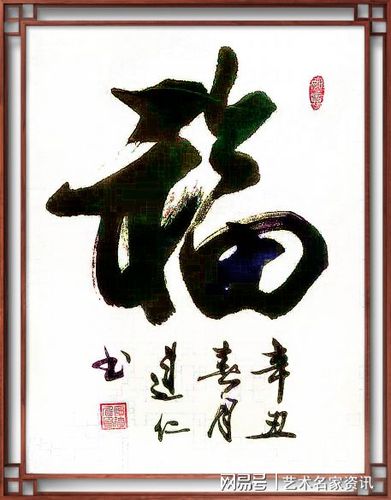 福
辛丑
春月
道仁
书
网易号 | 艺术名家资讯